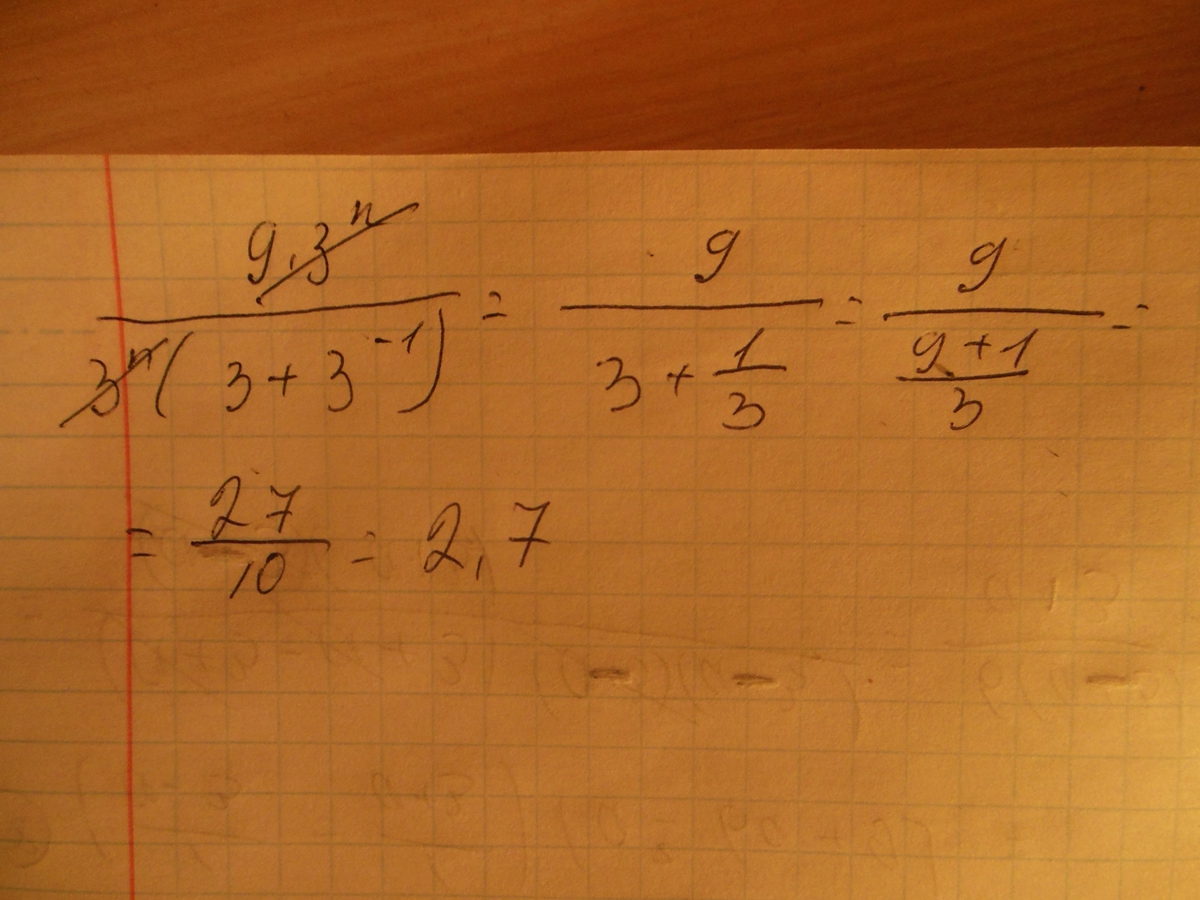 \frac{9 \cdot 3^n}{3^n(3+3^{-1})} = \frac{9}{3+\frac{1}{3}} = \frac{9}{\frac{9+1}{3}} =
= \frac{27}{10} = 2,7